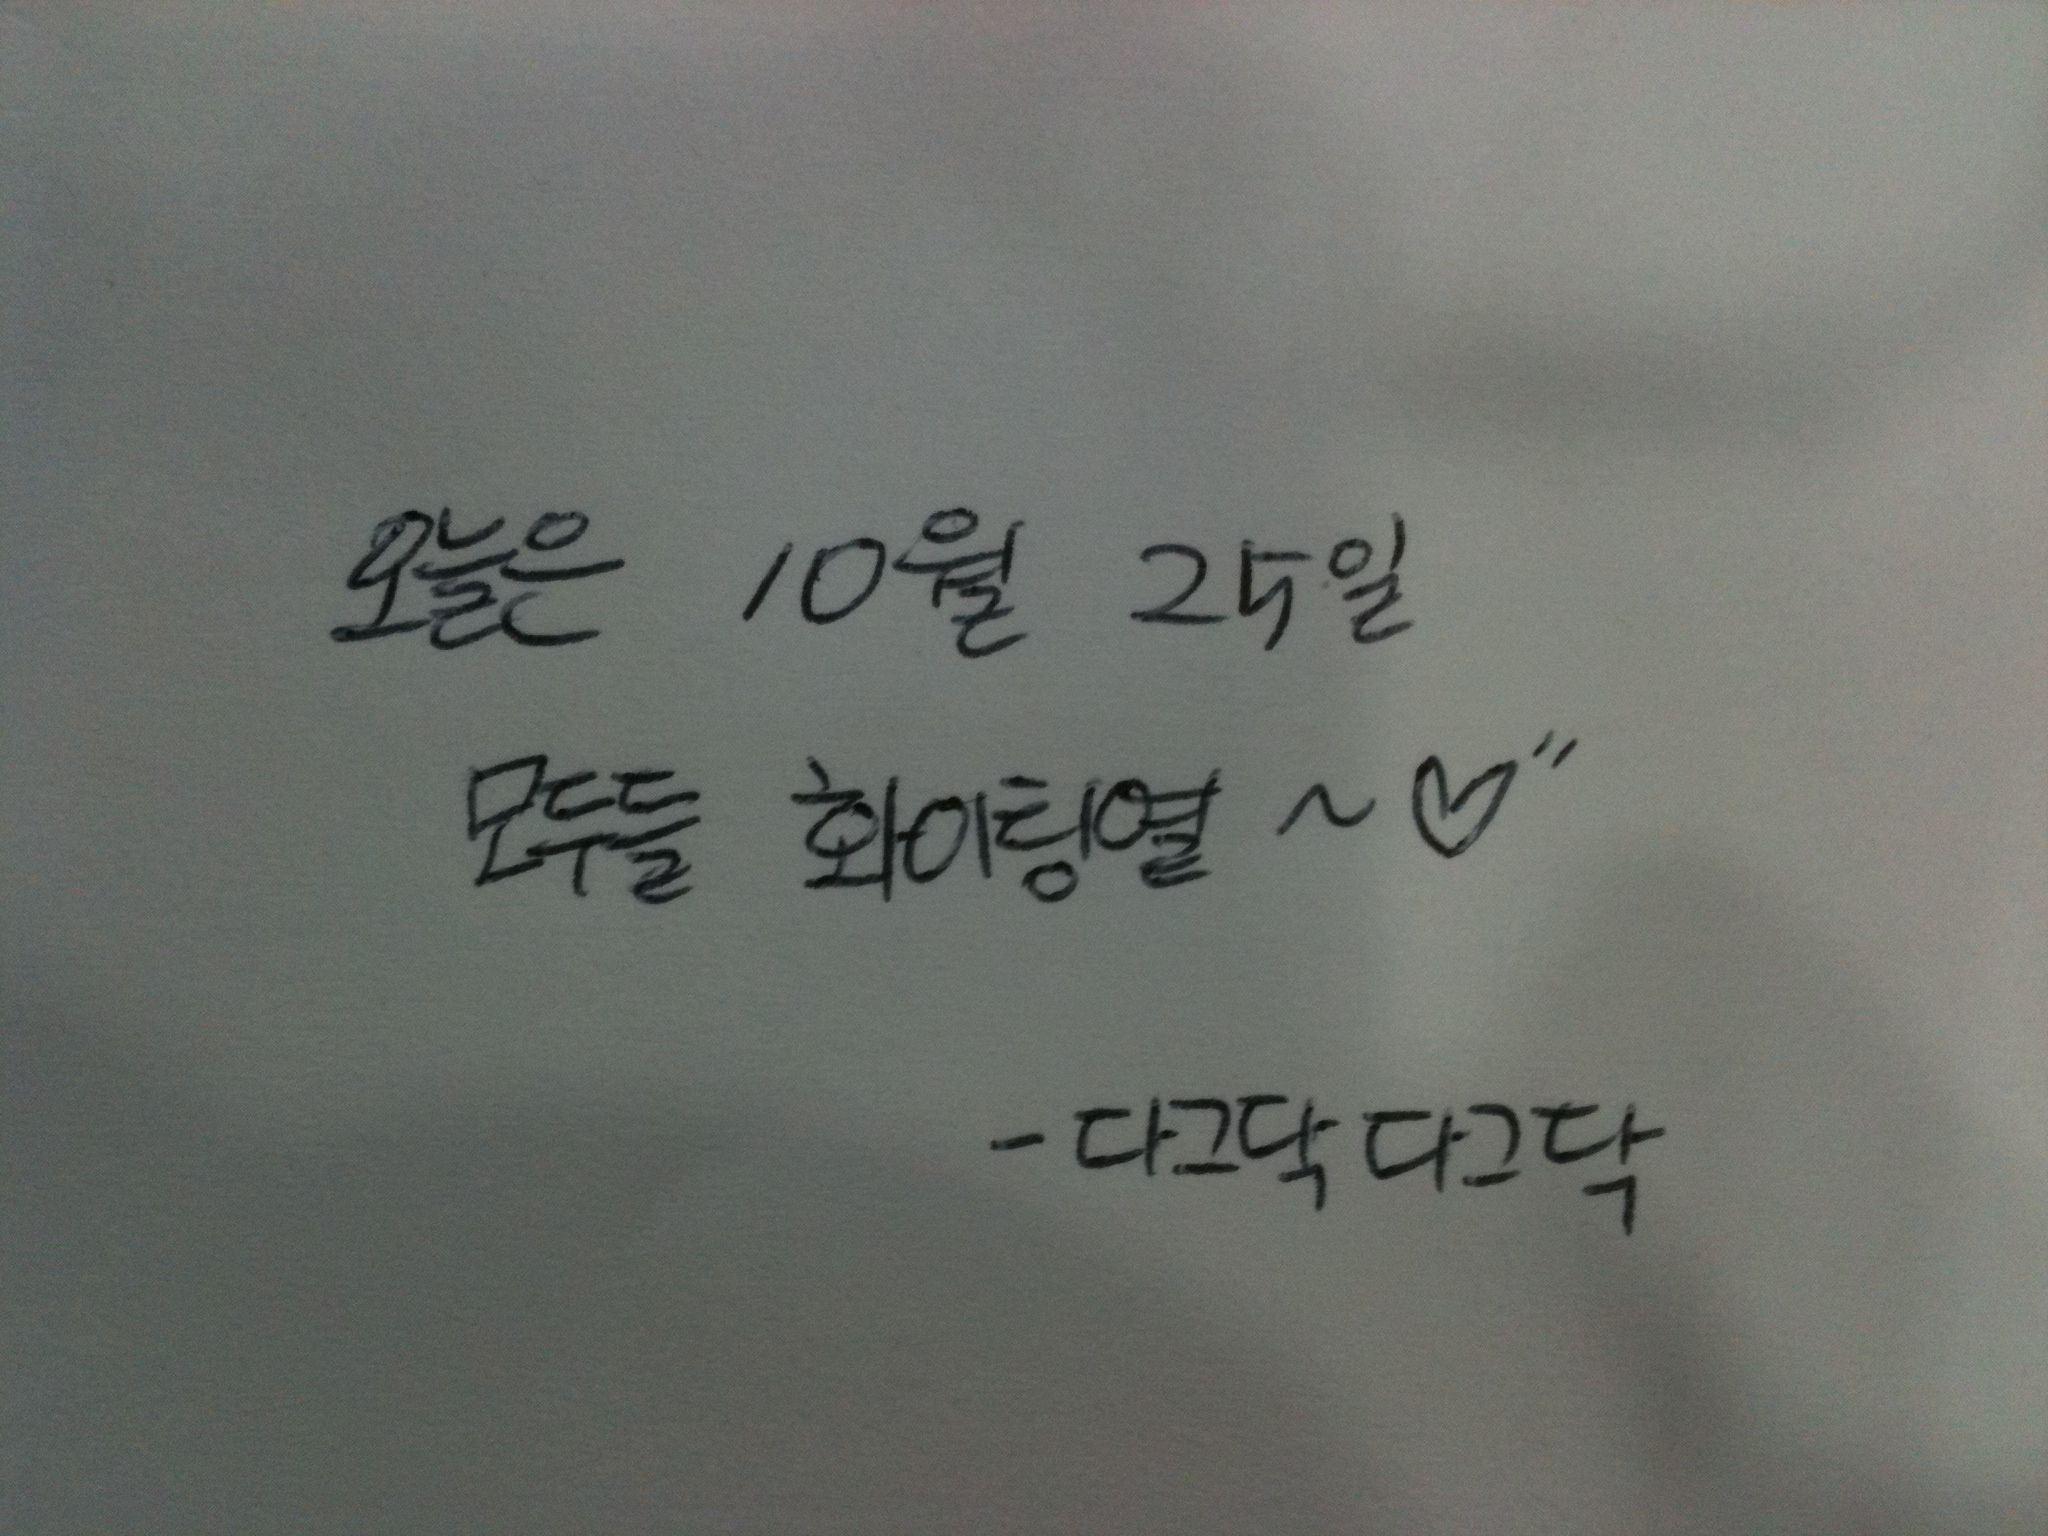 오늘은 10월 25일
모두들 화이팅열~♡"
-다그닥 다그닥